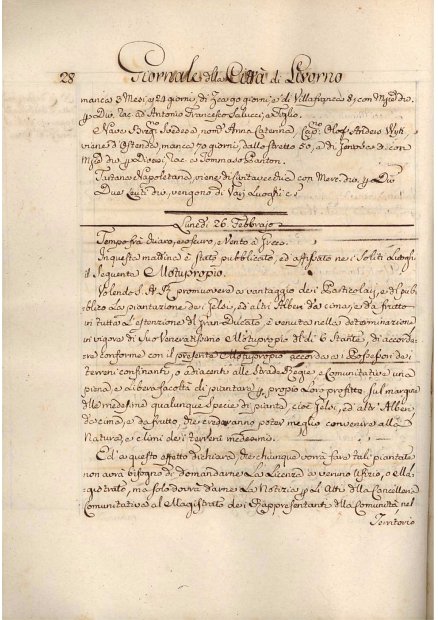 28 Giornale della Città di Livorno
manca 3 Mesi e 24 giorni, di giorni, e di Villafranca 8, con
ad Antonio Francesco Salucci, e Figlio.
Nave Svedese nom.ᵃ Anna Caterina Cap.º Olof Anders
viene d'Ostenda, manca 70 giorni, dallo stretto 50, e di Genova 2. con
a Tommaso Panton.
Tartana Napoletana, viene di Civitavecchia con Mercᵉ. div.
Due Leuti div. vengono di Varj Luoghi
Lunedi 26. Febbrajo
Tempo fra chiaro, e oscuro, e Vento a Greco.
In questa mattina è stato pubblicato, ed affissato nei Soliti Luoghi
il seguente Motuproprio.
Volendo S. A. R. promuovere a vantaggio dei Particolari, e del pub-
blico la piantazione dei Gelsi, ed altri Alberi da cima, e da frutto
in tutta l'estenzione del Gran-Ducato, è venuta nella determinazione
in vigore di Suo Veneratissimo Motuproprio del dì 6 Stante, di accorda-
re conforme con il presente Motuproprio accorda ai Possessori dei
terreni confinanti, o adiacenti alle Strade Regie, e Comunitative una
piena, e Libera facoltà di piantare proprio Loro profitto sul margine
delle medesime qualunque Specie di pianta, cioè Gelsi, ed altri Alberi
da cima, e da frutto, che crederanno poter meglio convenire alla
Natura, e climi dei terreni medesimi.
Ed a questo effetto dichiara, che chiunque vorrà fare tali piantate
non avrà bisogno di domandarne La Licenza a veruno Ufizio, o Ma-
gistrato, ma solo dovrà darne La Notizia Atti della Cancelleria
Comunitativa al Magistrato dei Rappresentanti della Comunità, nel
Territorio